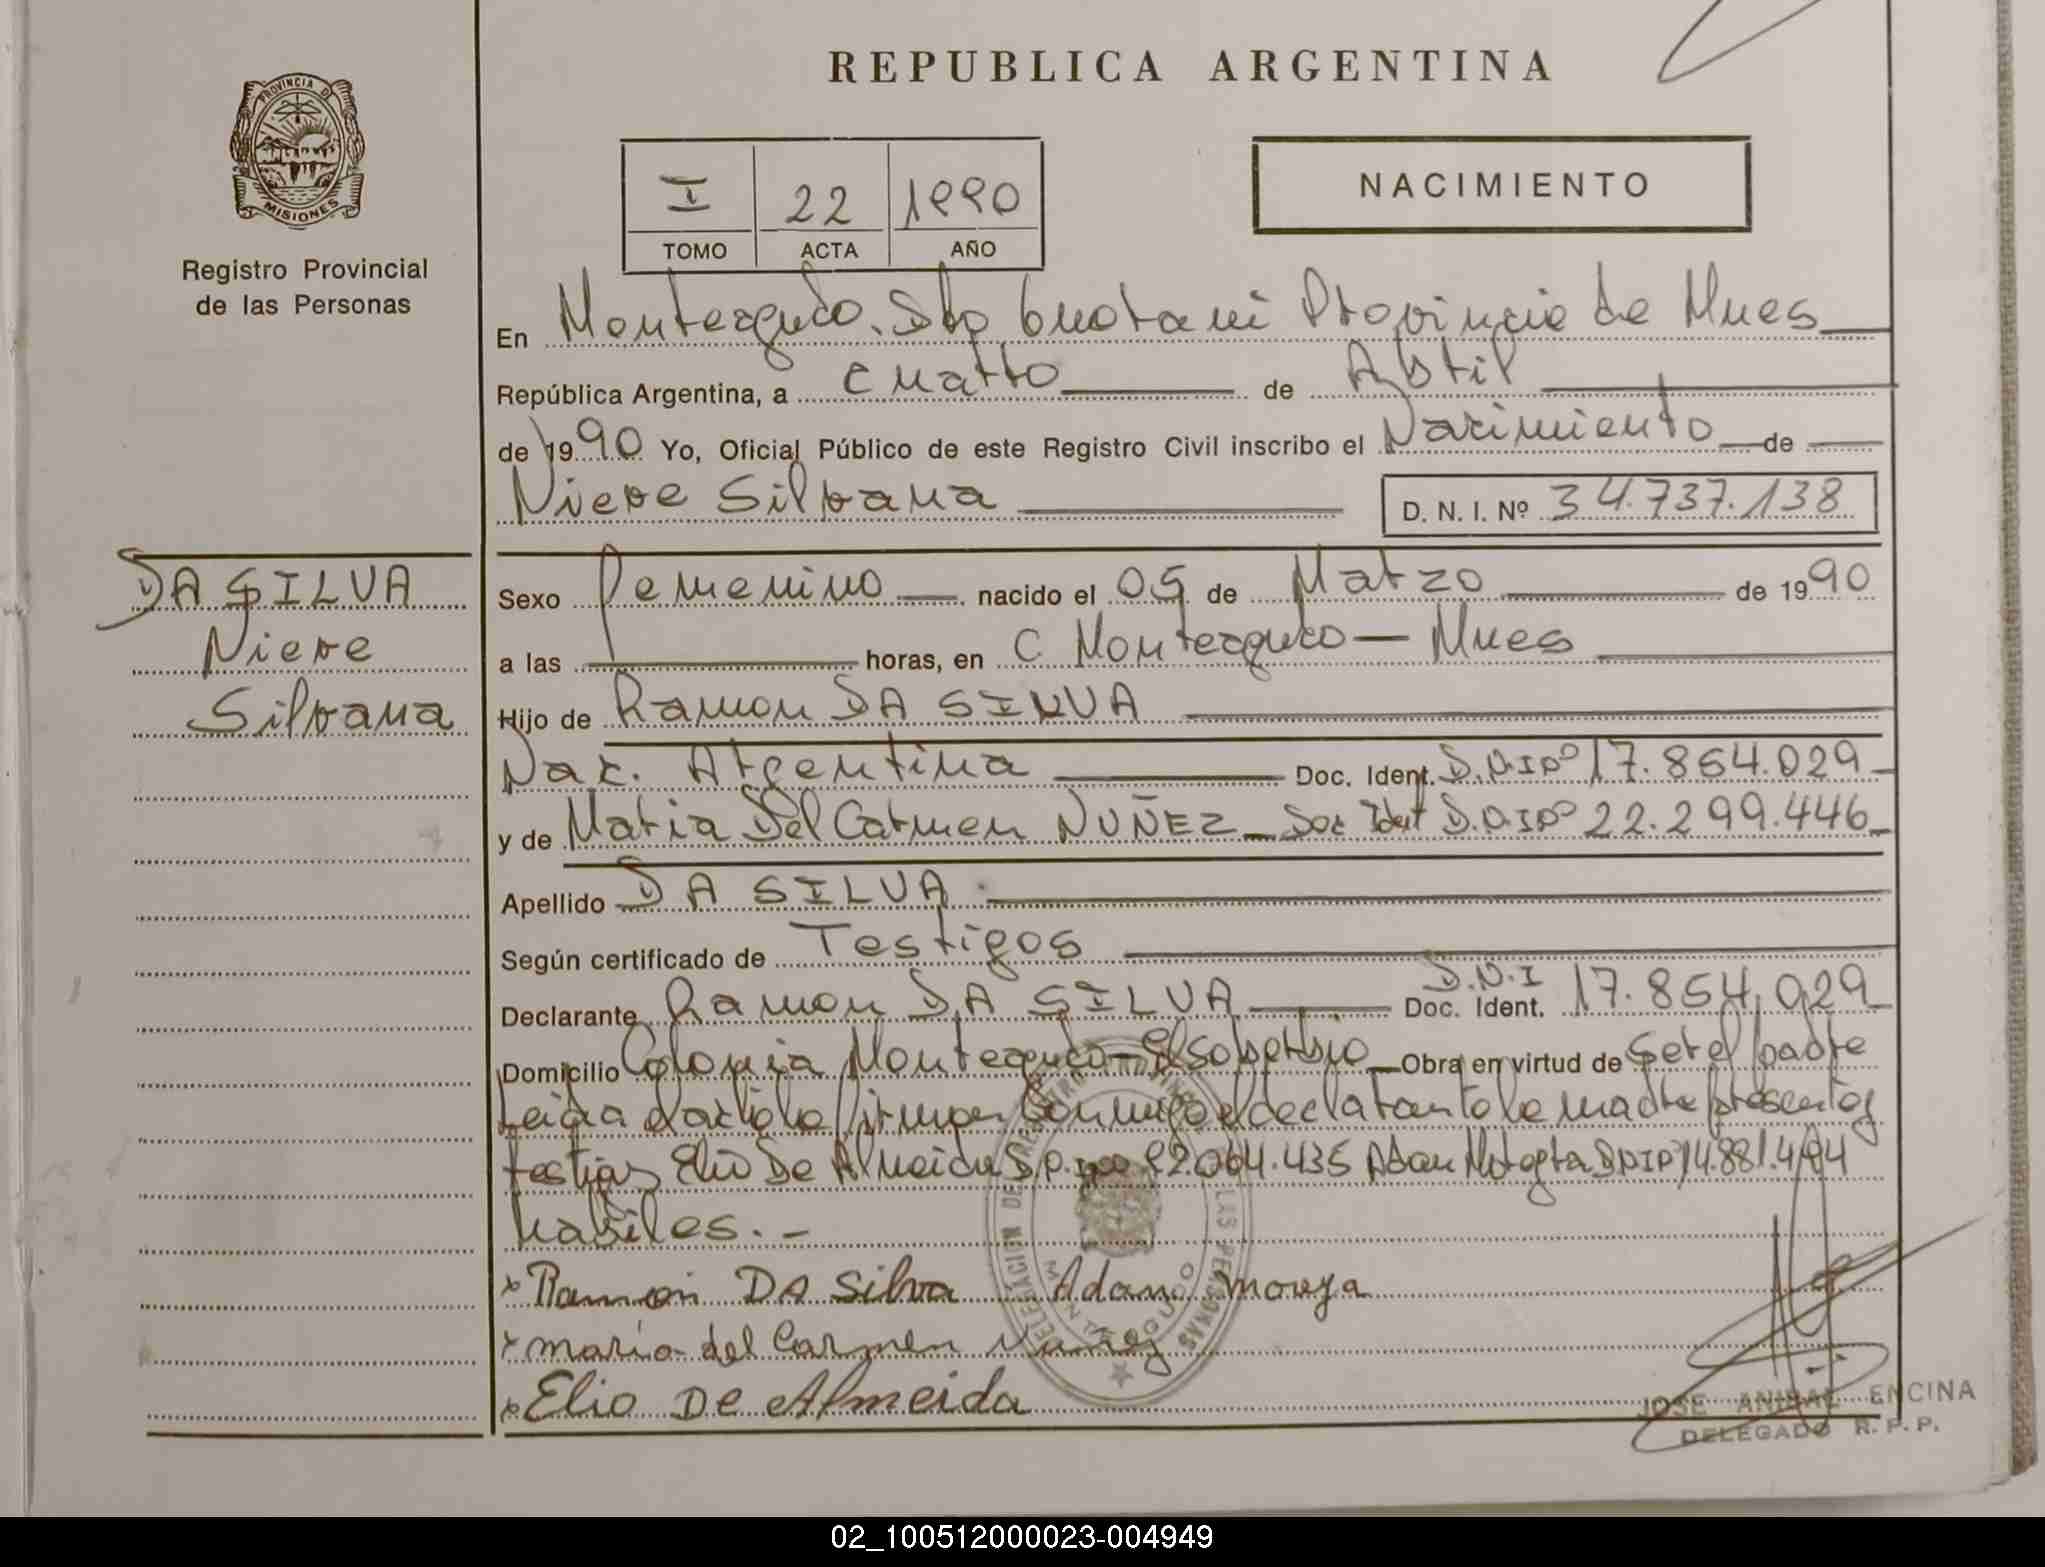 REPUBLICA ARGENTINA
PROVINCIA D
MISIONES
Registro Provincial
de las Personas
I 22 1990
TOMO ACTA AÑO
NACIMIENTO
En Monteagudo. Dto Guarani Provincia de Mnes
República Argentina, a cuatro de Abril
de 1990 Yo, Oficial Público de este Registro Civil inscribo el Nacimiento de
Nieve Silvana D. N. I. Nº 34.737.138
DA SILVA
Nieve
Silvana
Sexo Femenino nacido el 05 de Marzo de 1990
a las horas, en C. Monteagudo — Mnes
Hijo de Ramon DA SILVA
Nac. Argentina Doc. Ident. D.N.I Nº 17.854.029
y de Maria Del Carmen NUÑEZ Doc Ident D.N.I Nº 22.299.446
Apellido DA SILVA
Según certificado de Testigos
Declarante Ramon DA SILVA D.N.I Doc. Ident. 17.854.029
Domicilio Colonia Monteagudo - El Soberbio Obra en virtud de ser el padre
Leida el acta la firman conmigo el declarante la madre presentes
testigos Elio De Almeida Adan
habiles. -
x Ramon DA Silva Adan
x maria del Carmen Nuñez
x Elio De Almeida
DELEGACION DEL REGISTRO PROVINCIAL DE LAS PERSONAS
MONTEAGUDO
JOSE ANIBAL ENCINA
DELEGADO R. P. P.
02_100512000023-004949